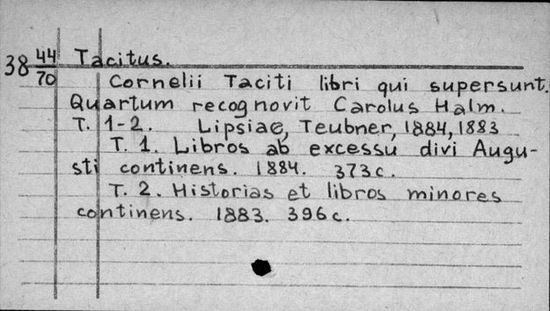 38 44/70 Tacitus.
Cornelii Taciti libri qui supersunt.
Quartum recognovit Carolus Halm.
T. 1-2. Lipsiae, Teubner, 1884, 1883
T. 1. Libros ab excessu divi Augu-
sti continens. 1884. 373c.
T. 2. Historias et libros minores
continens. 1883. 396c.